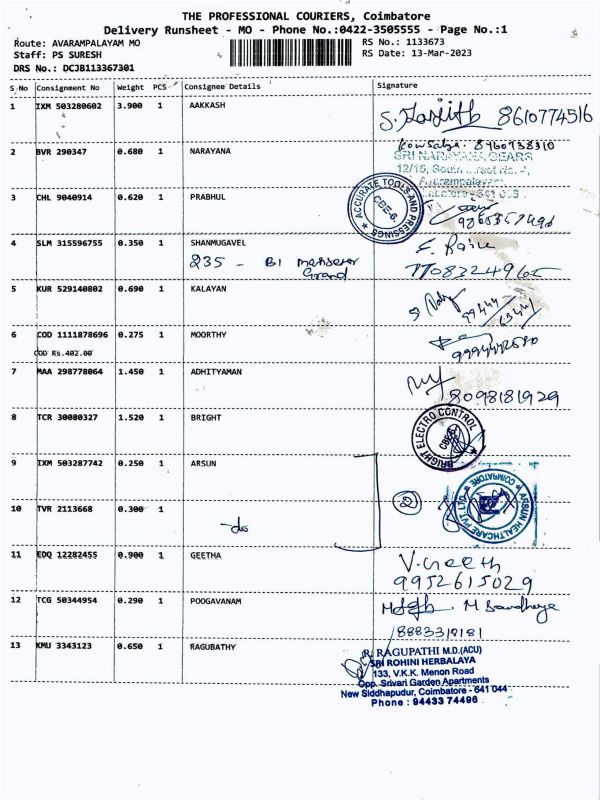 THE PROFESSIONAL COURIERS, Coimbatore
Delivery Runsheet - MO - Phone No.:0422-3505555 - Page No.:1
Route: AVARAMPALAYAM MO
Staff: PS SURESH
DRS No.: DCJB113367301
RS No.: 1133673
RS Date: 13-Mar-2023
S No Consignment No Weight PCS Consignee Details Signature
1 IXM 503280602 3.900 1 AAKKASH 8610774516
2 BVR 290347 0.680 1 NARAYANA 8960738310
SRI NARAYANA GEARS
12/15, South
3 CHL 9040914 0.620 1 PRABHUL
ACCURATE TOOLS AND PRESSINGS
CBE-6.
4 SLM 315596755 0.350 1 SHANMUGAVEL
235 - B1
Grand
5 KUR 529140802 0.690 1 KALAYAN
6 COD 1111878696 0.275 1 MOORTHY
COD Rs.402.00
7 MAA 298778064 1.450 1 ADHITYAMAN
8098181929
8 TCR 30080327 1.520 1 BRIGHT
BRIGHT ELECTRO CONTROL
9 IXM 503287742 0.250 1 ARSUN
10 TVR 2113668 0.300 1
-do
2
ARSUN HEALTHCARE PVT. LTD
COIMBATORE
11 EDQ 12282455 0.900 1 GEETHA V.Geeth
9952615029
12 TCG 50344954 0.290 1 POOGAVANAM
8883318181
13 KMU 3343123 0.650 1 RAGUBATHY
R. RAGUPATHI M.D.(ACU)
SRI ROHINI HERBALAYA
133, V.K.K. Menon Road
Opp. Srivari Garden Apartments
New Siddhapudur, Coimbatore - 641 044
Phone : 94433 74496